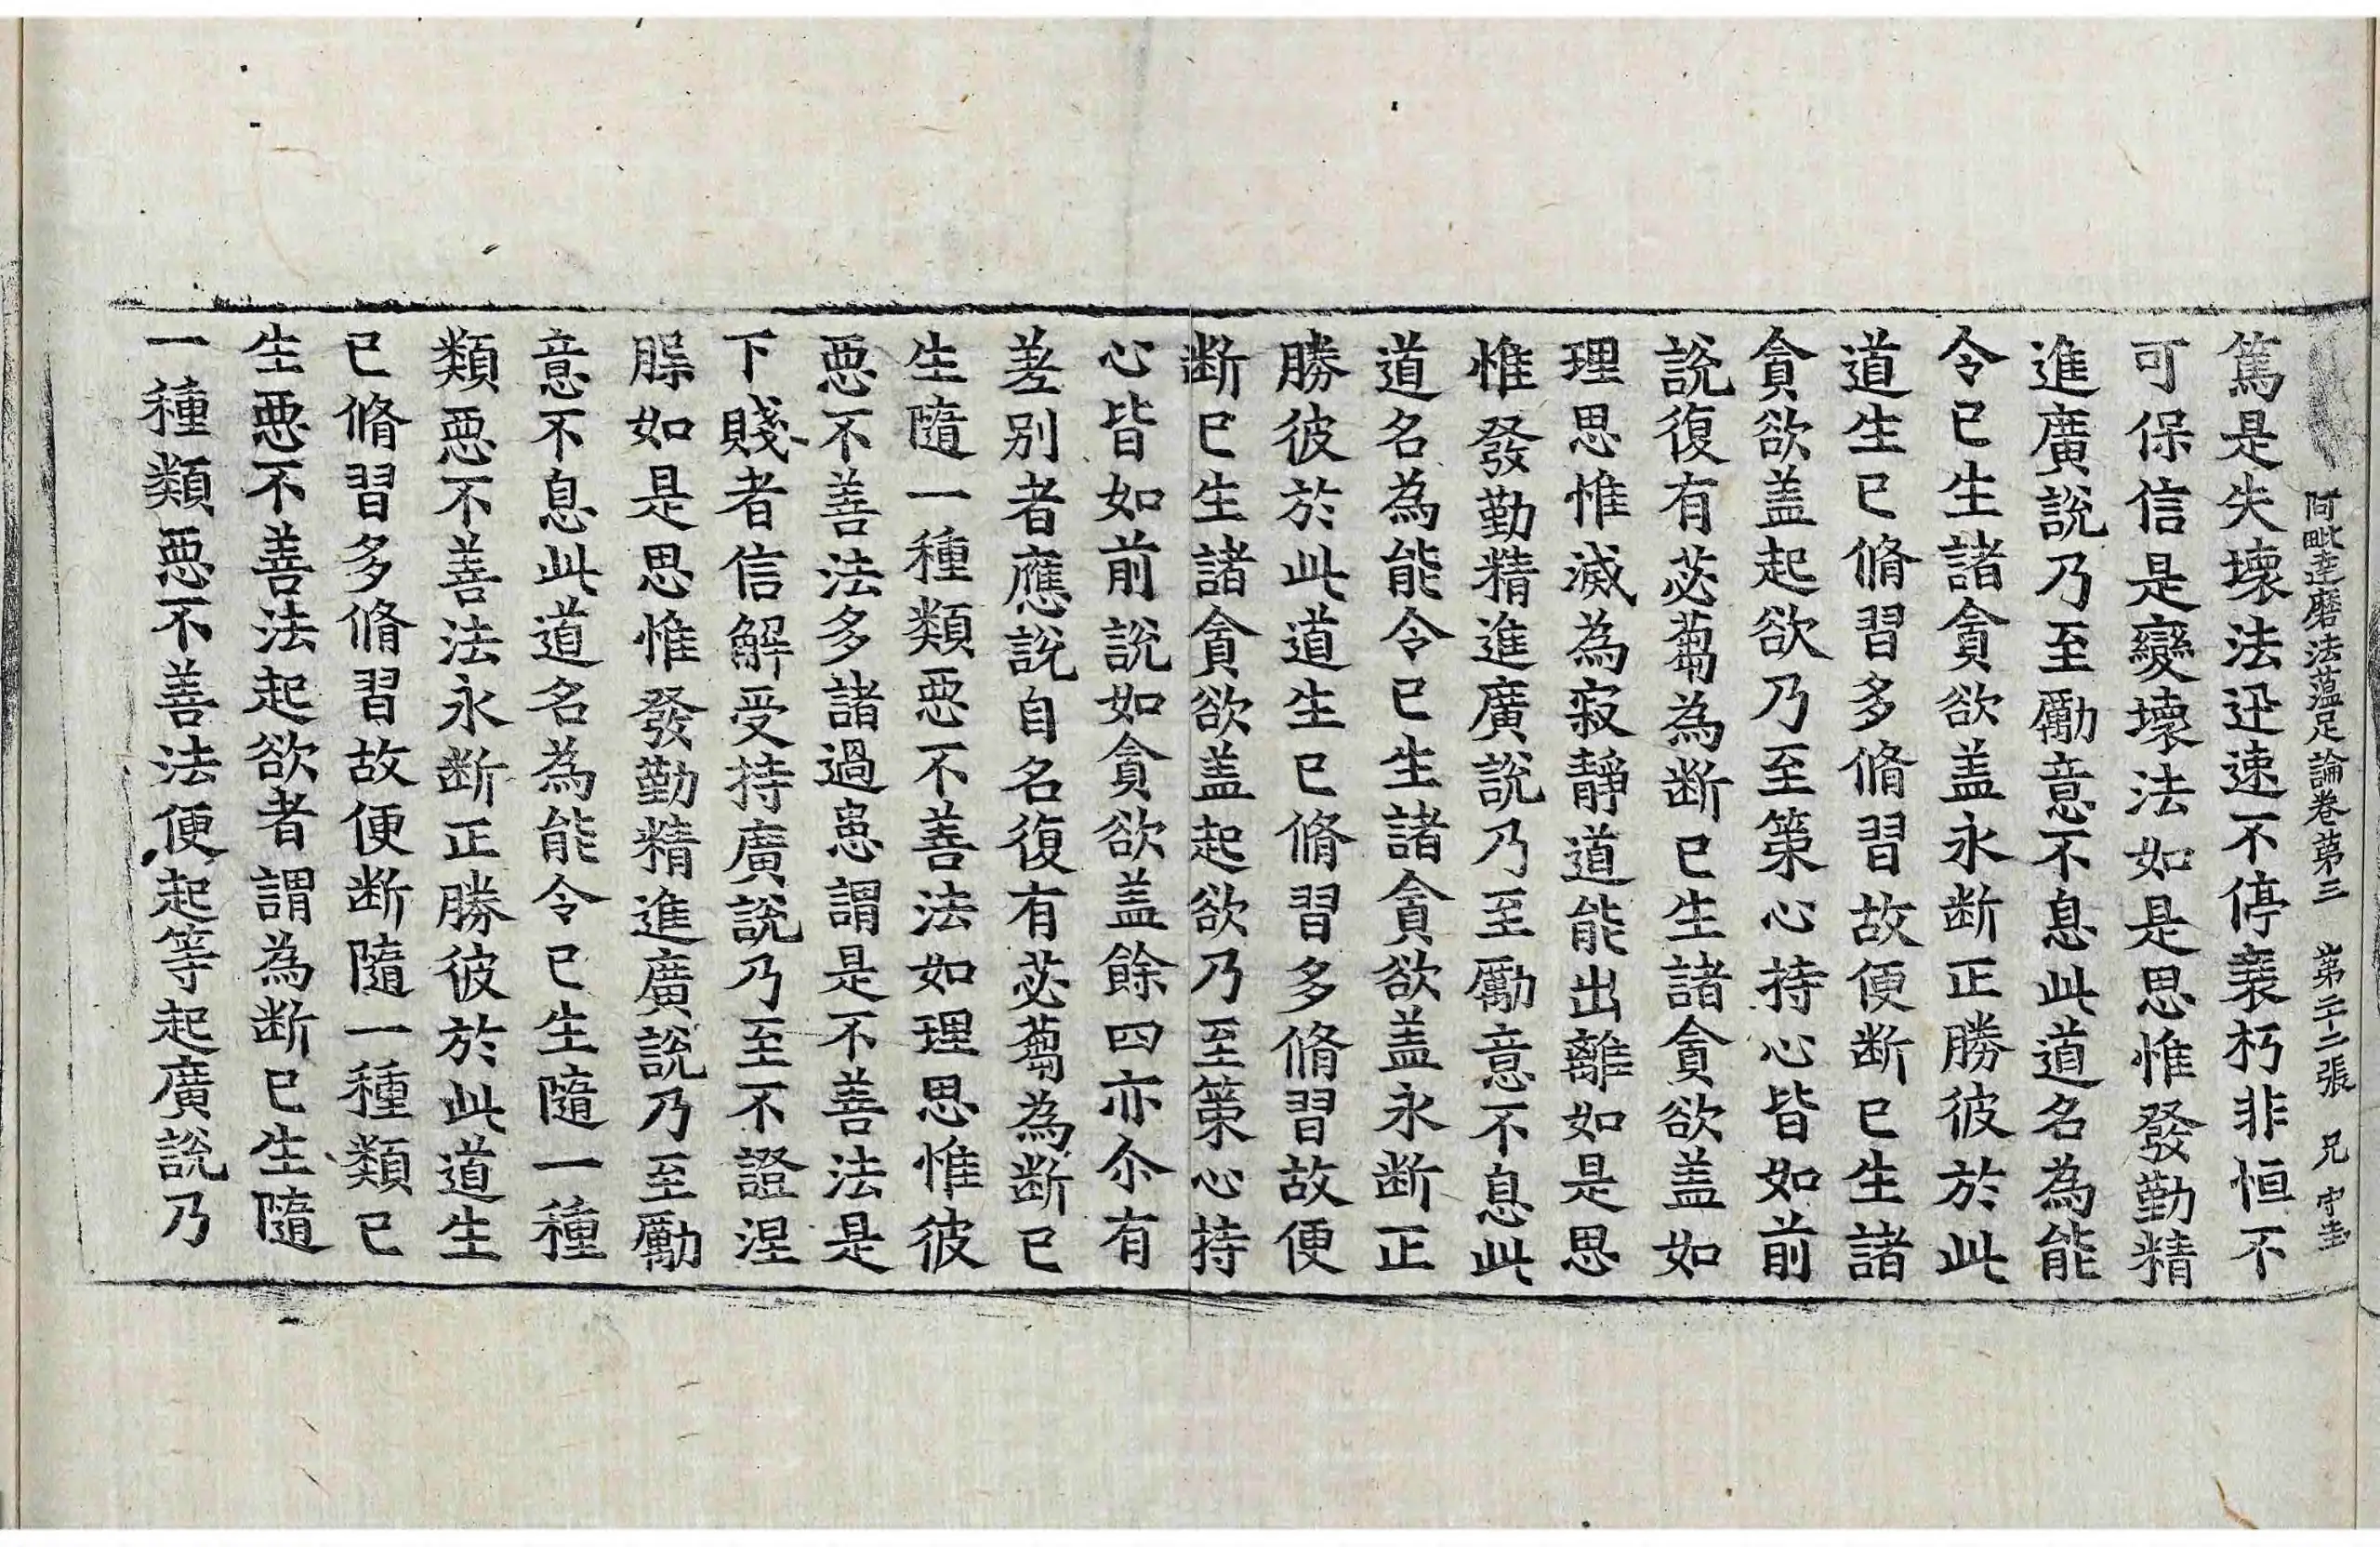 阿毗達磨法蘊足論卷第三 第二十二張 兄 守圭
篤是失壞法迅速不停衰朽非恒不
可保信是變壞法如是思惟發勤精
進廣說乃至勵意不息此道名為能
令已生諸貪欲盖永断正勝彼於此
道生已脩習多脩習故便断已生諸
貪欲盖起欲乃至策心持心皆如前
說復有苾蒭為断已生諸貪欲盖如
理思惟滅為寂靜道能出離如是思
惟發勤精進廣說乃至勵意不息此
道名為能令已生諸貪欲盖永断正
勝彼於此道生已脩習多脩習故便
断已生諸貪欲盖起欲乃至策心持
心皆如前說如貪欲盖餘四亦尒有
差别者應說自名復有苾蒭為断已
生隨一種類惡不善法如理思惟彼
惡不善法多諸過患謂是不善法是
下賤者信解受持廣說乃至不證涅
槃如是思惟發勤精進廣說乃至勵
意不息此道名為能令已生隨一種
類惡不善法永断正勝彼於此道生
已脩習多脩習故便断隨一種類已
生惡不善法起欲者謂為断已生隨
一種類惡不善法便起等起廣說乃